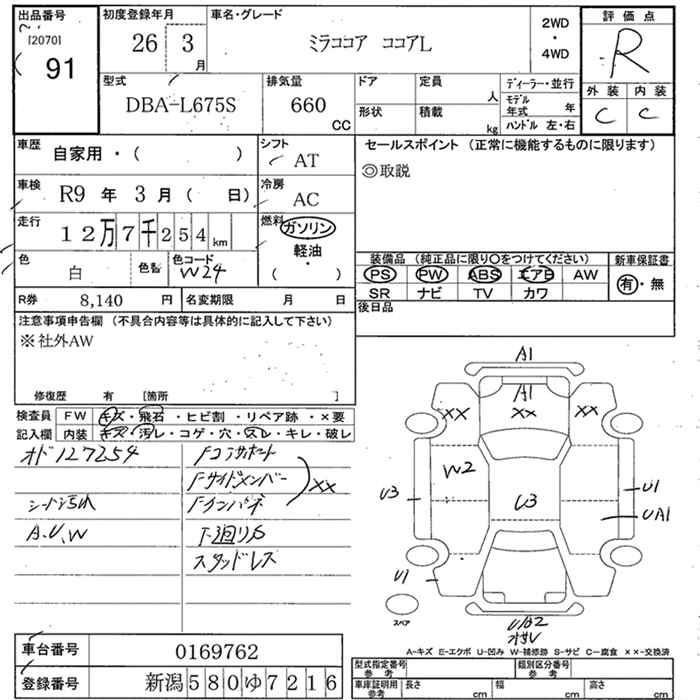 出品番号
[2070]
91
初度登録年月
26 3 月
車名・グレード
ミラココア ココアL
2WD
・
4WD
評価点
R
外装 内装
C C
型式
DBA-L675S
排気量
660
CC
ドア
定員
人
形状
積載
kg
ディーラー・並行
モデル
年式 年
ハンドル 左・右
車歴
自家用・( )
シフト
AT
車検
R9 年 3 月 ( 日)
冷房
AC
走行
12万7千254 km
燃料
ガソリン
軽油
・
( )
色
白
色替
色コード
W24
R券 8,140 円
名変期限 月 日
セールスポイント (正常に機能するものに限ります)
◎取説
装備品 (純正品に限り○をつけてください)
PS PW ABS エアB AW
SR ナビ TV カワ
新車保証書
有・無
後日品
注意事項申告欄 (不具合内容等は具体的に記入して下さい)
※社外AW
修復歴 有 [箇所 ]
検査員
記入欄
FW キズ・飛石・ヒビ割・リペア跡・×要
内装 キズ・汚レ・コゲ・穴・スレ・キレ・破レ
オド127254
シート汚れ
A.U.W
Fコアサポート
Fサイドメンバー
Fインパネ
XX
下廻りS
スタッドレス
A1
A1
XX XX XX
W2
U3
U3
U1
UA1
U1
スペア
UB2
A-キズ E-エクボ U-凹み W-補修跡 S-サビ C-腐食 ××-交換済
車台番号 0169762
登録番号 新潟580ゆ7216
型式指定番号
参考
類別区分番号
参考
車庫証明用
参考
長さ cm
幅 cm
高さ cm